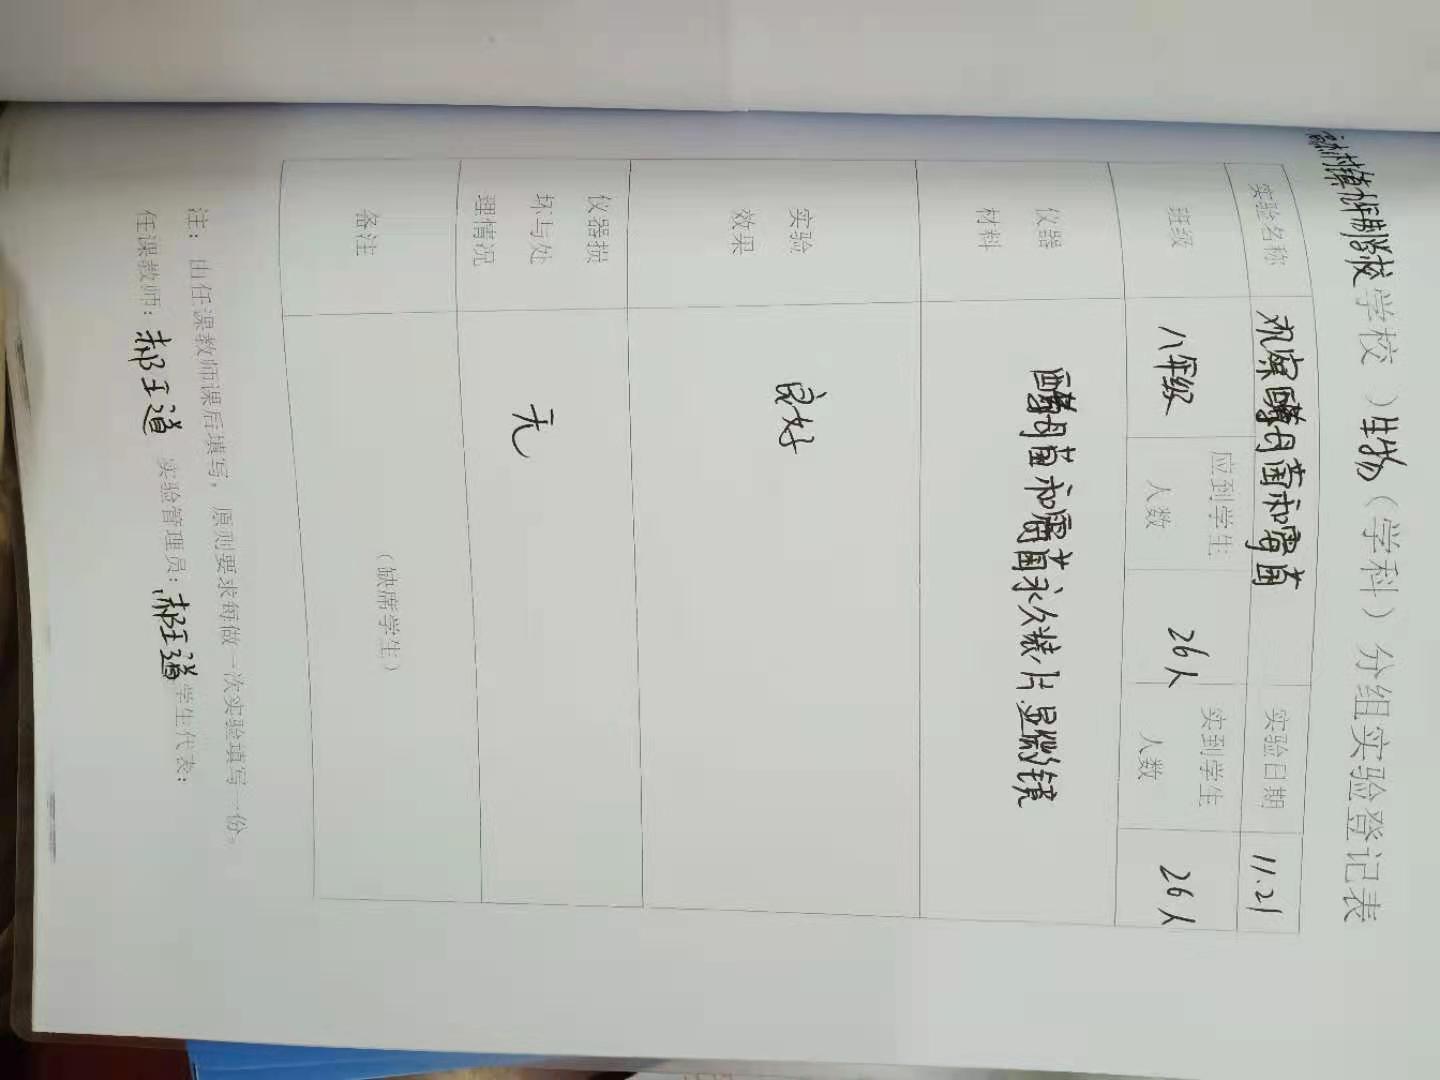 村镇九年制学校学校）生物（学科）分组实验登记表
实验名称 观察酵母菌和霉菌 实验日期 11.21
班级 八年级 应到学生人数 26人 实到学生人数 26人
仪器
材料
酵母菌和霉菌永久装片.显微镜
实验
效果
良好
仪器损
坏与处
理情况
无
备注
（缺席学生）
注：由任课教师课后填写，原则要求每做一次实验填写一份。
任课教师：郝王道 实验管理员：郝王道 学生代表：